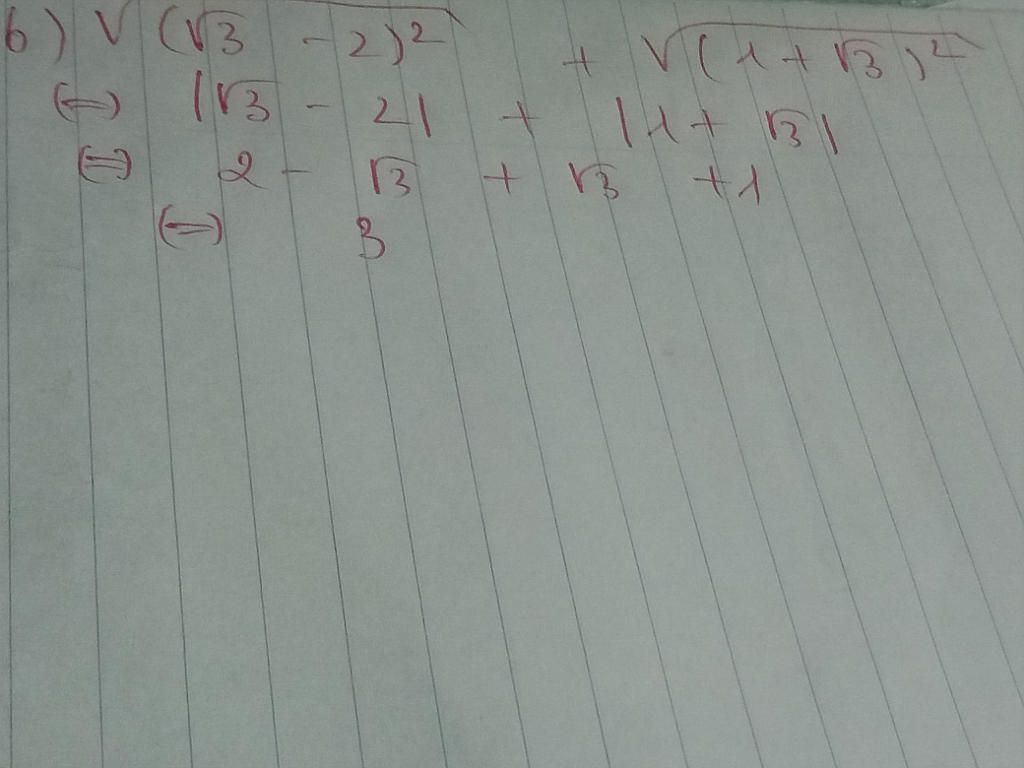 b) √(√3 - 2)² + √(1 + √3)²
(=) |√3 - 2| + |1 + √3|
(=) 2 - √3 + √3 + 1
(=) 3